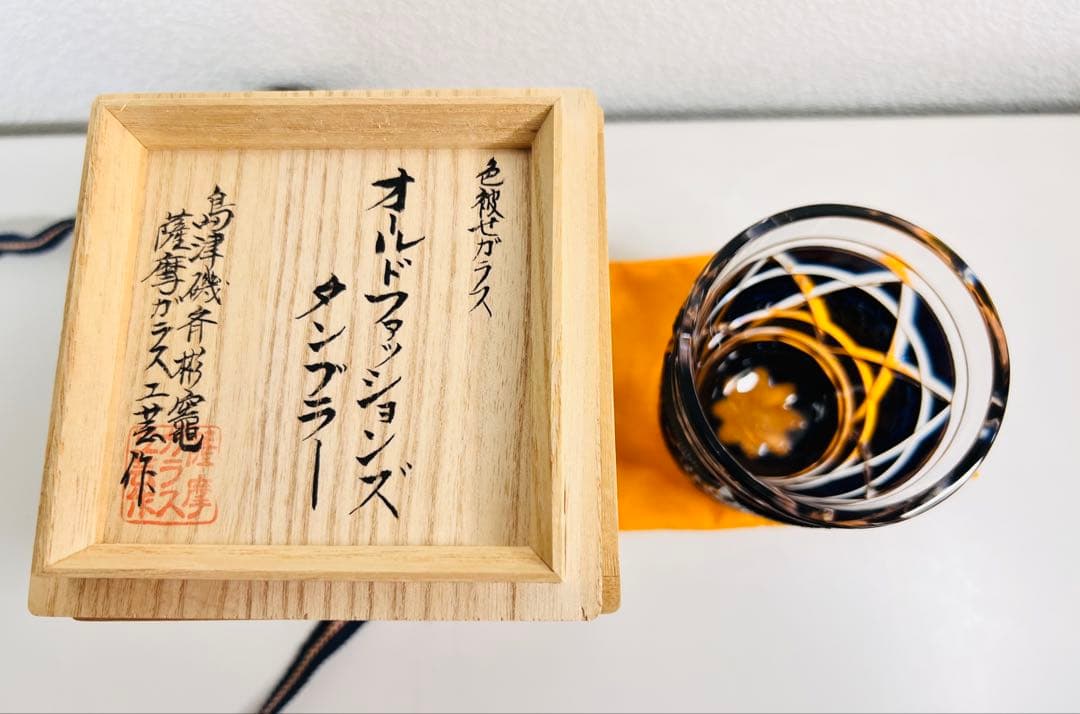 色被せガラス
オールドファッションズ
タンブラー
島津磯斉彬竈
薩摩ガラス工芸作
薩摩
ガラス